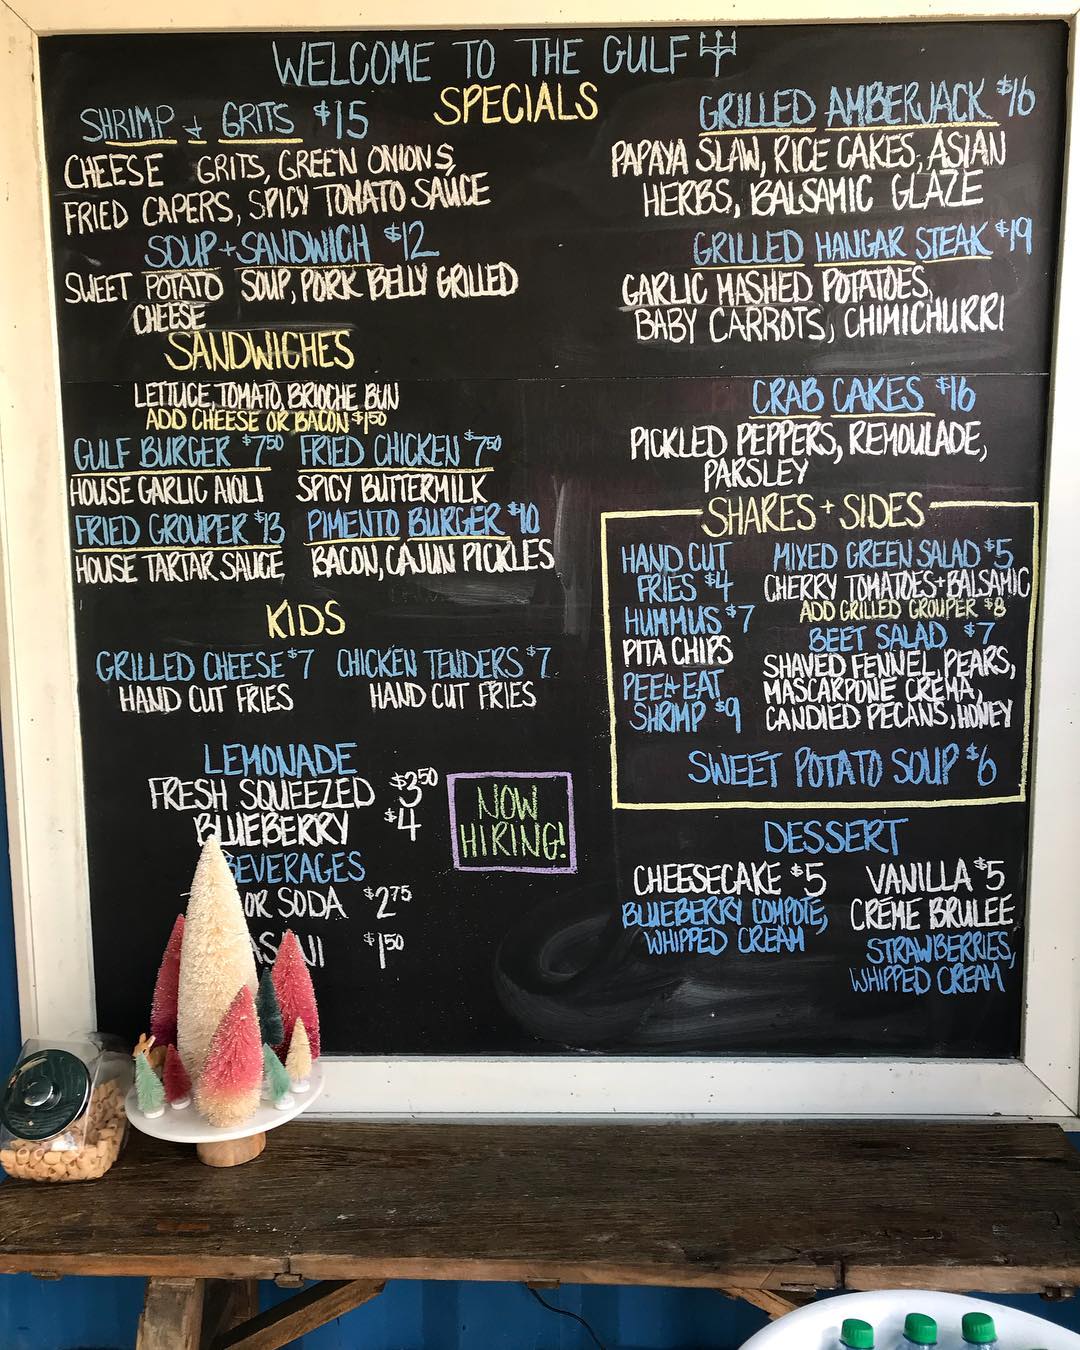 WELCOME TO THE GULF
SPECIALS
SHRIMP + GRITS $15
CHEESE GRITS, GREEN ONIONS,
FRIED CAPERS, SPICY TOMATO SAUCE
SOUP + SANDWICH $12
SWEET POTATO SOUP, PORK BELLY GRILLED
CHEESE
GRILLED AMBERJACK $16
PAPAYA SLAW, RICE CAKES, ASIAN
HERBS, BALSAMIC GLAZE
GRILLED HANGAR STEAK $19
GARLIC MASHED POTATOES,
BABY CARROTS, CHIMICHURRI
CRAB CAKES $16
PICKLED PEPPERS, REMOULADE,
PARSLEY
SANDWICHES
LETTUCE, TOMATO, BRIOCHE BUN
ADD CHEESE OR BACON $1.50
GULF BURGER $7.50 FRIED CHICKEN $7.50
HOUSE GARLIC AIOLI SPICY BUTTERMILK
FRIED GROUPER $13 PIMENTO BURGER $10
HOUSE TARTAR SAUCE BACON, CAJUN PICKLES
KIDS
GRILLED CHEESE $7 CHICKEN TENDERS $7
HAND CUT FRIES HAND CUT FRIES
SHARES + SIDES
HAND CUT
FRIES $4
HUMMUS $7
PITA CHIPS
PEEL + EAT
SHRIMP $9
MIXED GREEN SALAD $5
CHERRY TOMATOES + BALSAMIC
ADD GRILLED GROUPER $8
BEET SALAD $7
SHAVED FENNEL, PEARS,
MASCARPONE CREMA,
CANDIED PECANS, HONEY
SWEET POTATO SOUP $6
LEMONADE
FRESH SQUEEZED $3.50
BLUEBERRY $4
BEVERAGES
OR SODA $2.75
$1.50
NOW
HIRING!
DESSERT
CHEESECAKE $5
BLUEBERRY COMPOTE,
WHIPPED CREAM
VANILLA $5
CRÈME BRULEE
STRAWBERRIES,
WHIPPED CREAM